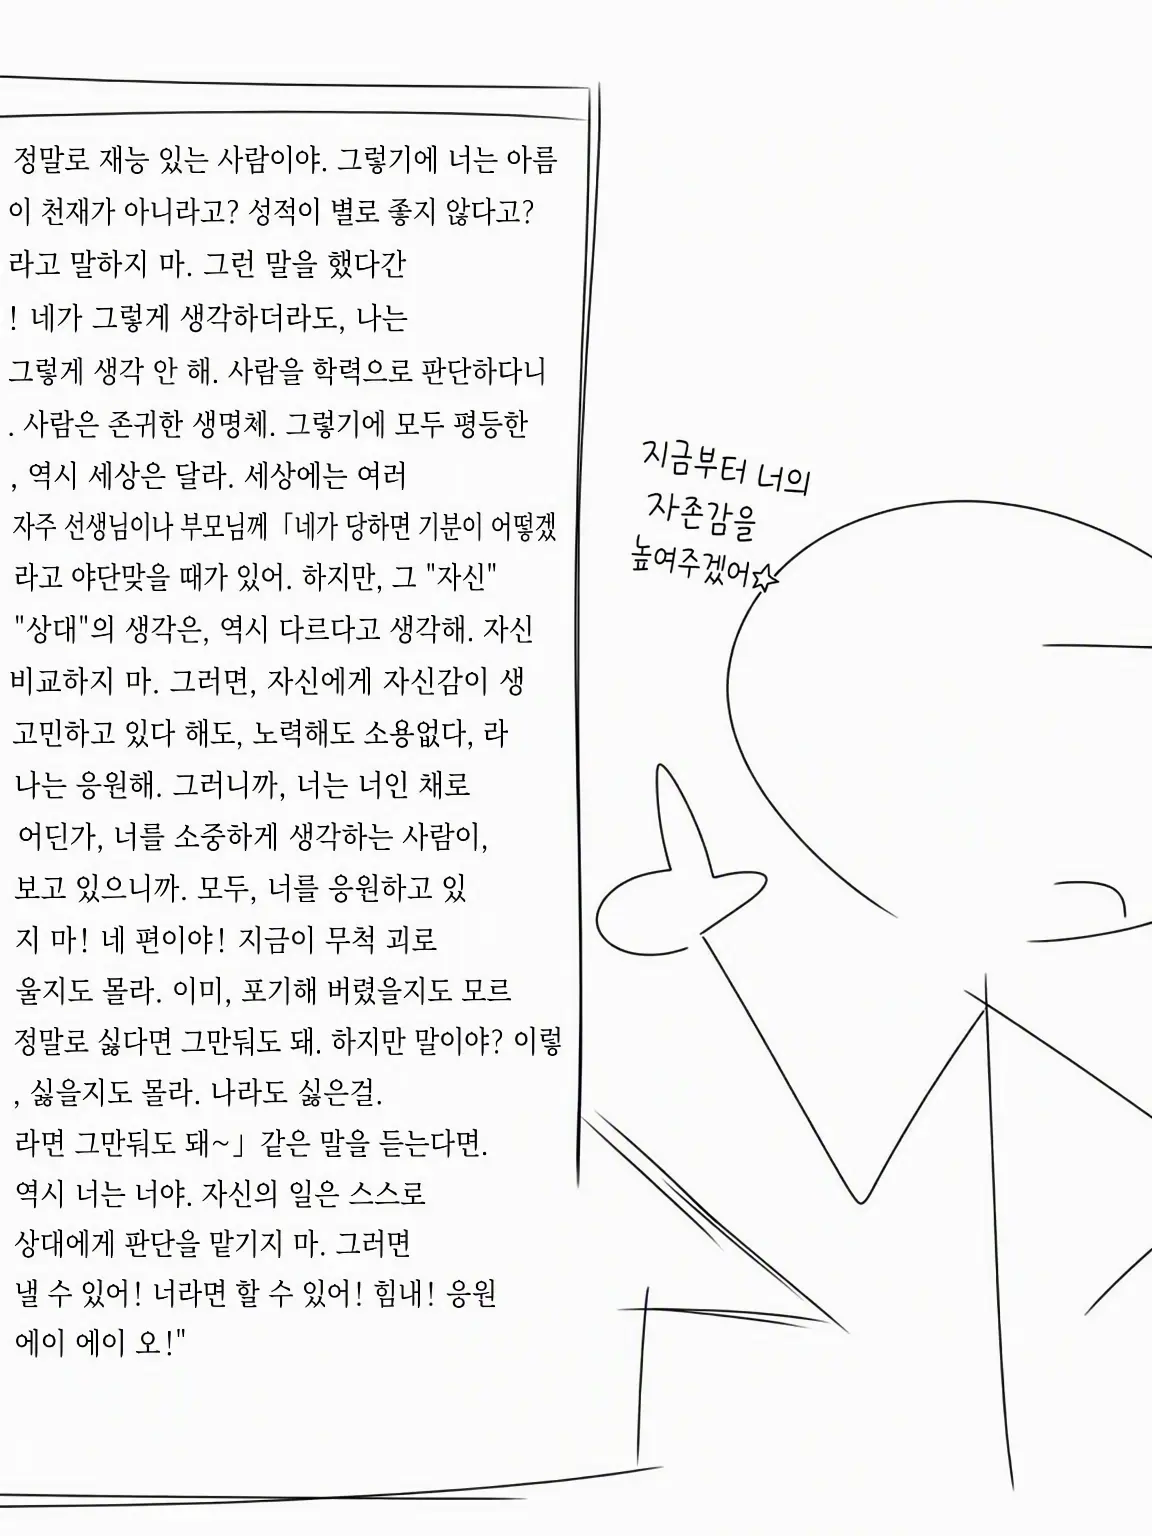 정말로 재능 있는 사람이야. 그렇기에 너는 아름
이 천재가 아니라고? 성적이 별로 좋지 않다고?
라고 말하지 마. 그런 말을 했다간
! 네가 그렇게 생각하더라도, 나는
그렇게 생각 안 해. 사람을 학력으로 판단하다니
. 사람은 존귀한 생명체. 그렇기에 모두 평등한
, 역시 세상은 달라. 세상에는 여러
자주 선생님이나 부모님께「네가 당하면 기분이 어떻겠
라고 야단맞을 때가 있어. 하지만, 그 "자신"
"상대"의 생각은, 역시 다르다고 생각해. 자신
비교하지 마. 그러면, 자신에게 자신감이 생
고민하고 있다 해도, 노력해도 소용없다, 라
나는 응원해. 그러니까, 너는 너인 채로
어딘가, 너를 소중하게 생각하는 사람이,
보고 있으니까. 모두, 너를 응원하고 있
지 마! 네 편이야! 지금이 무척 괴로
울지도 몰라. 이미, 포기해 버렸을지도 모르
정말로 싫다면 그만둬도 돼. 하지만 말이야? 이렇
, 싫을지도 몰라. 나라도 싫은걸.
라면 그만둬도 돼~」같은 말을 듣는다면.
역시 너는 너야. 자신의 일은 스스로
상대에게 판단을 맡기지 마. 그러면
낼 수 있어! 너라면 할 수 있어! 힘내! 응원
에이 에이 오!"
지금부터 너의
자존감을
높여주겠어☆